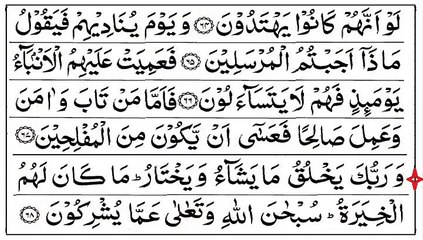 لَوْ اَنَّهُمْ كَانُوْا يَهْتَدُوْنَ ﴿۶۴﴾ وَ يَوْمَ يُنَادِيْهِمْ فَيَقُوْلُ
مَاذَاۤ اَجَبْتُمُ الْمُرْسَلِيْنَ ﴿۶۵﴾ فَعَمِيَتْ عَلَيْهِمُ الْاَنْۢبَآءُ
يَوْمَىِٕذٍ فَهُمْ لَا يَتَسَآءَلُوْنَ ﴿۶۶﴾ فَاَمَّا مَنْ تَابَ وَ اٰمَنَ
وَ عَمِلَ صَالِحًا فَعَسٰۤى اَنْ يَّكُوْنَ مِنَ الْمُفْلِحِيْنَ ﴿۶۷﴾
وَ رَبُّكَ يَخْلُقُ مَا يَشَآءُ وَ يَخْتَارُ ؕ مَا كَانَ لَهُمُ
الْخِيَرَةُ ؕ سُبْحٰنَ اللّٰهِ وَ تَعٰلٰى عَمَّا يُشْرِكُوْنَ ﴿۶۸﴾